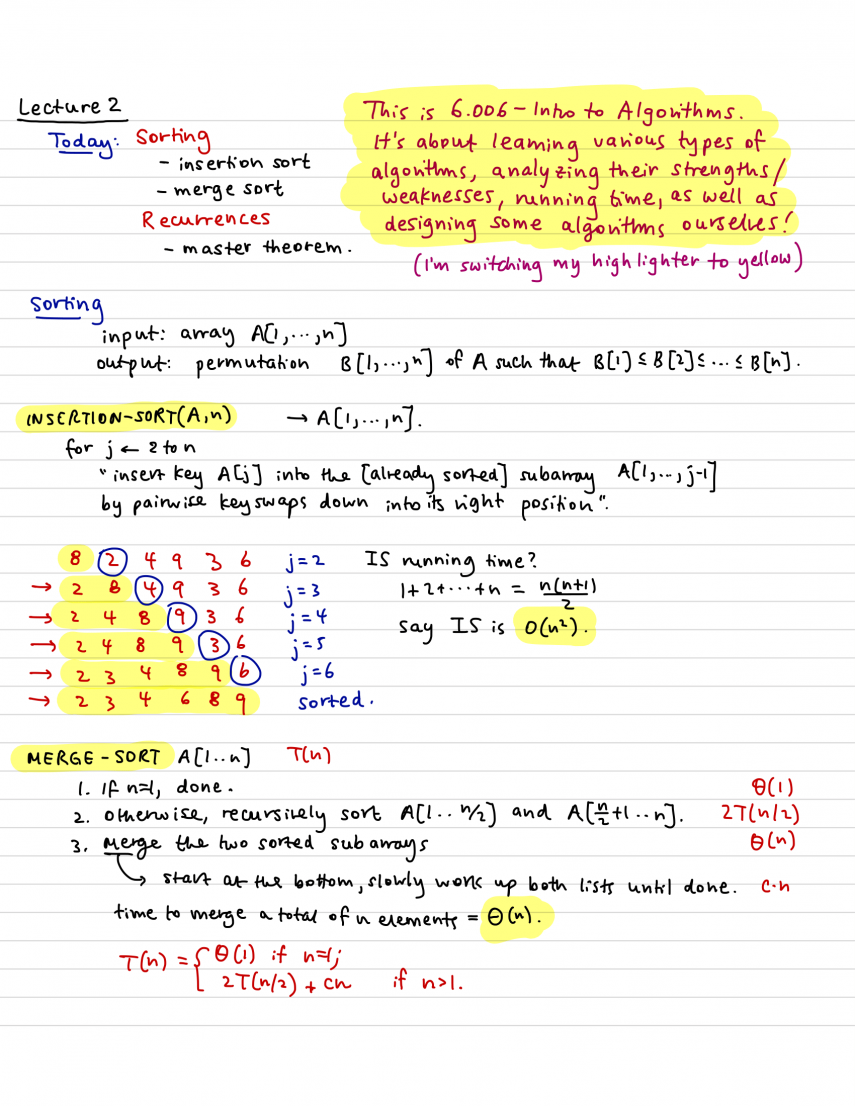 Lecture 2
Today: Sorting
- insertion sort
- merge sort
Recurrences
- master theorem.
This is 6.006 - Intro to Algorithms.
It's about learning various types of
algorithms, analyzing their strengths/
weaknesses, running time, as well as
designing some algorithms ourselves!
(I'm switching my highlighter to yellow)
Sorting
input: array A[1,...,n]
output: permutation B[1,...,n] of A such that B[1] ≤ B[2] ≤ ... ≤ B[n].
INSERTION-SORT(A,n) → A[1,...,n].
for j ← 2 to n
"insert key A[j] into the [already sorted] subarray A[1,...,j-1]
by pairwise key swaps down into its right position".
8 2 4 9 3 6 j=2
→ 2 8 4 9 3 6 j=3
→ 2 4 8 9 3 6 j=4
→ 2 4 8 9 3 6 j=5
→ 2 3 4 8 9 6 j=6
→ 2 3 4 6 8 9 sorted.
IS running time?
1+2+...+n = n(n+1)/2
say IS is O(n²).
MERGE-SORT A[1..n] T(n)
1. If n=1, done. Θ(1)
2. otherwise, recursively sort A[1..n/2] and A[n/2+1..n]. 2T(n/2)
3. Merge the two sorted subarrays Θ(n)
↳ start at the bottom, slowly work up both lists until done. c·n
time to merge a total of n elements = Θ(n).
T(n) = { Θ(1) if n=1;
2T(n/2) + cn if n>1.